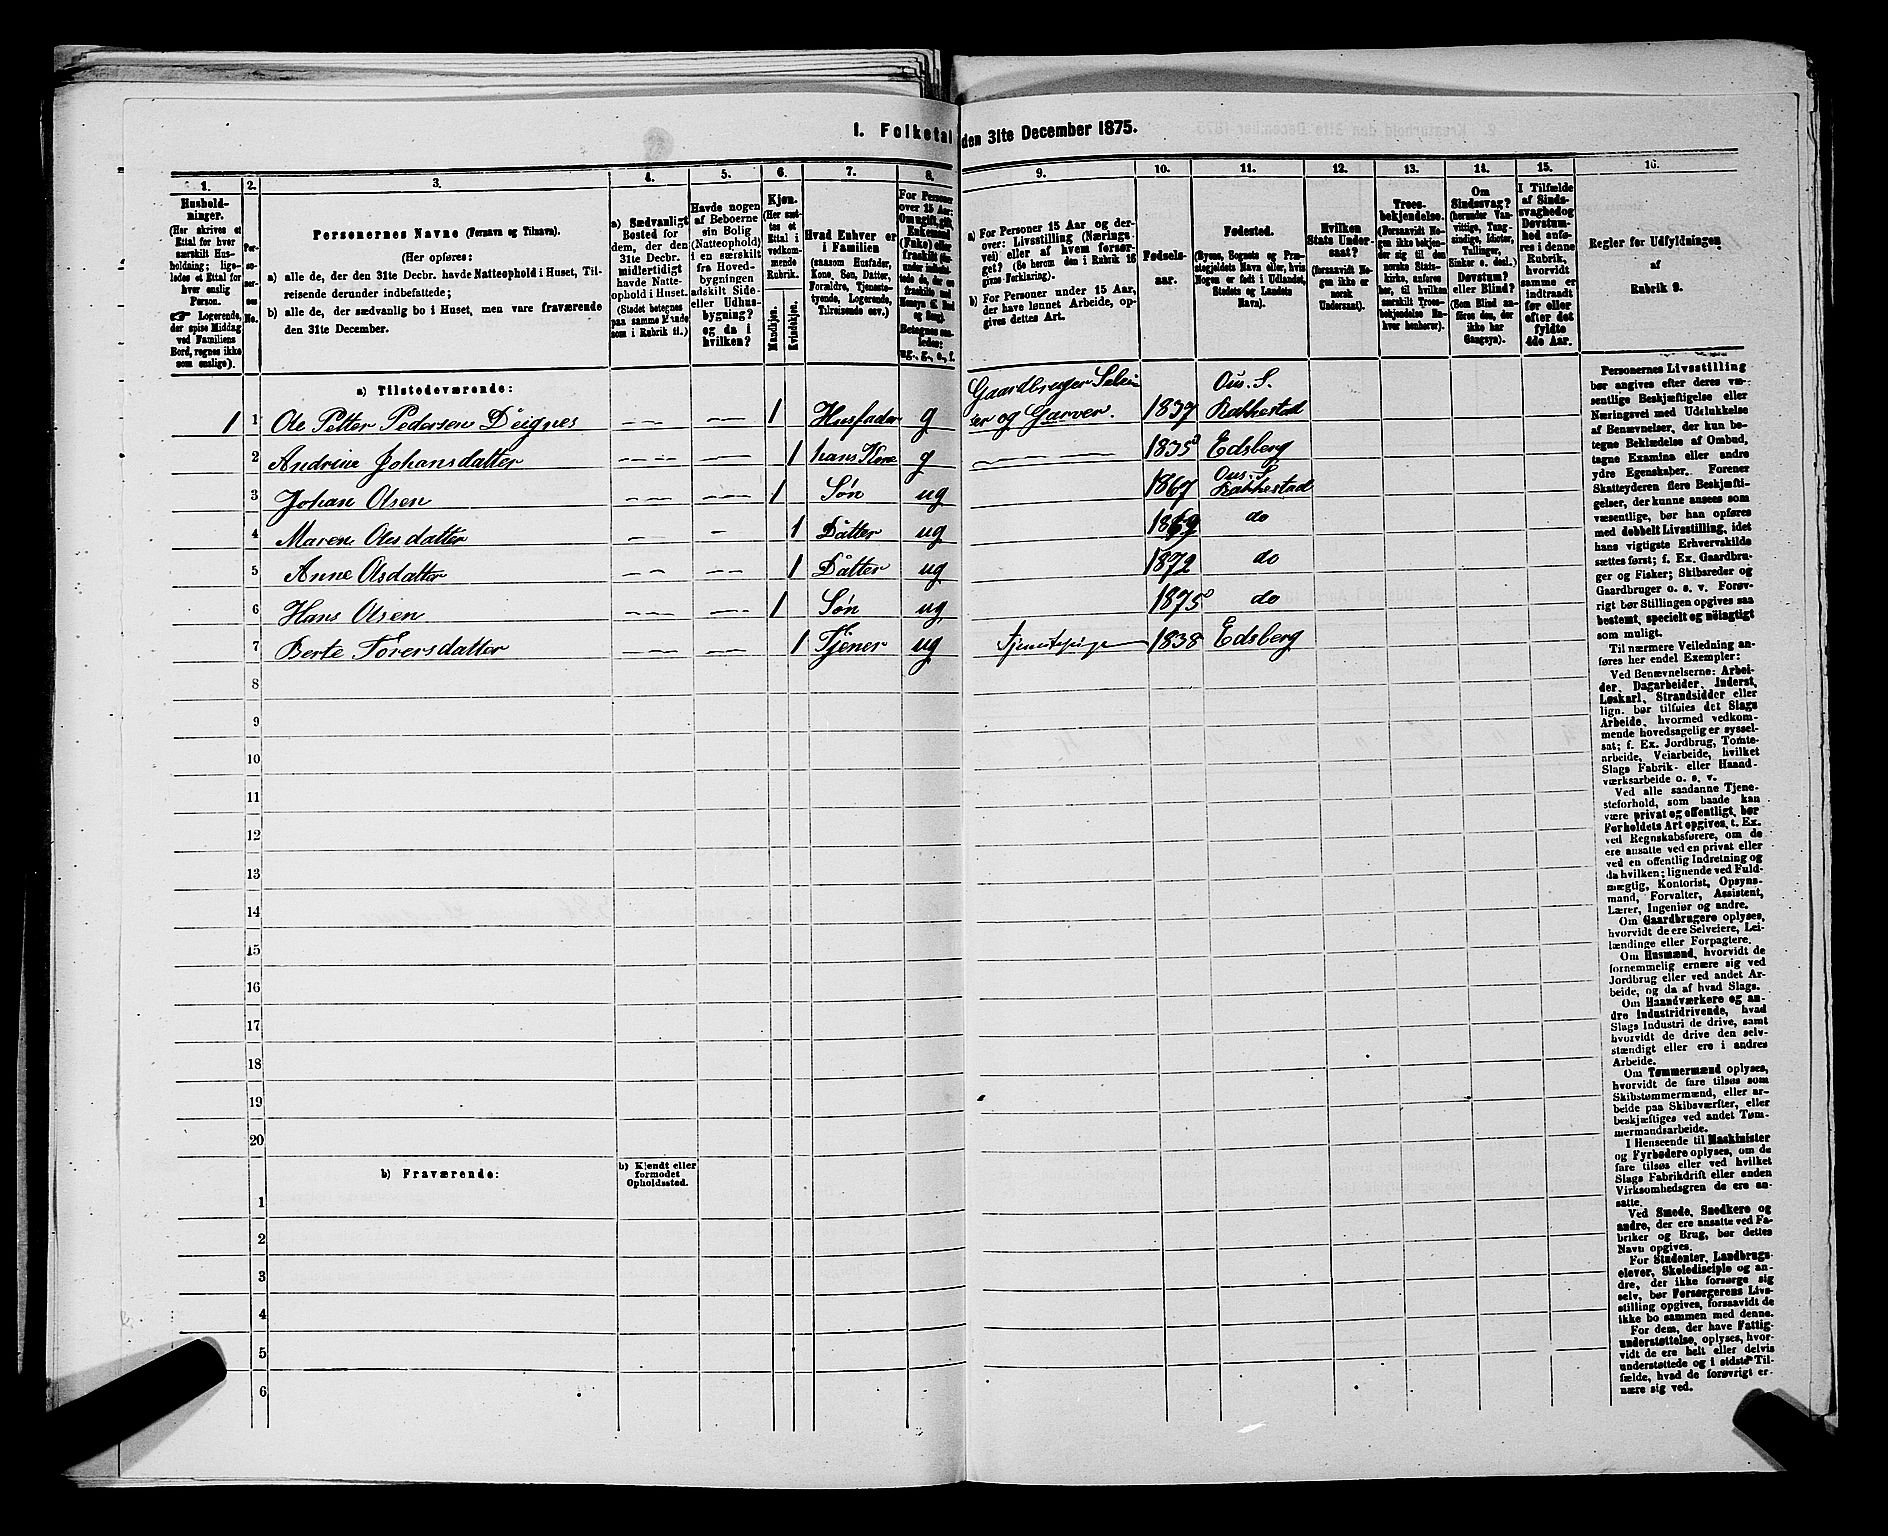 1. Folketal den 31te December 1875.
1. 2. 3. 4. 5. 6. 7. 8. 9. 10. 11. 12. 13. 14. 15. 16.
Husholdninger.
(Her skrives et
Ettal for hver
særskilt Hus-
holdning; lige-
ledes et Ettal for
hver enslig
Person.
☞ Logerende,
der spise Middag
ved Familiens
Bord, regnes ikke
som enslige).
Per-
so-
ner-
nes
No.
Personernes Navne (Fornavn og Tilnavn).
(Her opføres:
a) alle de, der den 31te Decbr. havde Natteophold i Huset, Til-
reisende derunder indbefattede;
b) alle de, der sædvanlig bo i Huset, men vare fraværende
den 31te December.
a) Sædvanligt
Bosted for
dem, der den
31te Decbr.
midlertidigt
havde Natte-
ophold i Huset.
(Stedet betegnes
paa samme Maade
som i Rubrik 11.)
Havde nogen
af Beboerne
sin Bolig
(Natteophold)
i en særskilt
fra Hoved-
bygningen
adskilt Side-
eller Udhus-
bygning?
og da i
hvilken?
Kjøn.
(Her sæt-
tes et
Ettal i
vedkom-
mende
Rubrik.)
Mandkjøn.
Kvindekjøn.
Hvad Enhver er
i Familien
(saasom Husfader,
Kone, Søn, Datter,
Forældre, Tjeneste-
tyende, Logerende,
Tilreisende osv.)
For Personer
over 15 Aar:
Om ugift, gift,
Enkemand
(Enke) eller
fraskilt
Betegnes saa-
ledes:
ug., g., e., f.
a) For Personer 15 Aar og der-
over: Livsstilling (Nærings-
vei) eller af hvem forsør-
get? (Se herom den i Rubrik 16
givne Forklaring).
b) For Personer under 15 Aar,
der have lønnet Arbeide, op-
gives dettes Art.
Fødsels-
aar.
Fødested.
(Byens, Sognets og Præ-
stegjeldets Navn eller, hvis
Nogen er født i Udlandet,
Stedets og Landets
Navn).
Hvilken
Stats Under-
saat?
(forsaavidt No-
gen ikke er
norsk
Undersaat).
Troes-
bekjendelse.
(Forsaavidt No-
gen ikke bekjen-
der sig til den
norske Stats-
kirke, anføres
her, til hvilken
særskilt Troes-
bekjendelse En-
hver henhører).
Om
Sindssvag?
(herunder Van-
vittige, Tung-
sindige, Idioter,
Tullinger,
Sinker o. desl.)
Døvstum?
eller Blind?
(Som Blind an-
føres den, der
ikke har
Gangsyn).
I Tilfælde
af Sinds-
svaghed og
Døvstum-
hed anfø-
res i denne
Rubrik,
hvorvidt
samme er
indtraadt
før eller
efter det
fyldte
4de Aar.
Regler for Udfyldningen
af
Rubrik 9.
a) Tilstedeværende:
1 1 Ole Petter Pedersen Deignes 1 Husfader g Gaardbruger Selvei er og Garver. 1837 Ous. S. Rakkestad
2 Andrine Johansdatter 1 hans Kone g 1835 Edsberg
3 Johan Olsen 1 Søn ug 1867 Ous. S. Rakkestad
4 Maren Olsdatter 1 Datter ug 1869 do
5 Anne Olsdatter 1 Datter ug 1872 do
6 Hans Olsen 1 Søn ug 1875 do
7 Berte Torersdatter 1 Tjener ug Tjenestepige 1838 Edsberg
8
9
10
11
12
13
14
15
16
17
18
19
20
b) Fraværende:
b) Kjendt eller
formodet
Opholdssted.
1
2
3
4
5
6
Personernes Livsstilling
bør angives efter deres væ-
sentlige Beskjæftigelse eller
Næringsvei med Udelukkelse
af Benævnelser, der kun be-
tegne Beklædelse af Ombud,
tagne Examina eller andre
ydre Egenskaber. Forener
Skatteyderen flere Beskjæfti-
gelser, der kunne ansees som
væsentlige, bør han opføres
med dobbelt Livsstilling, idet
hans vigtigste Erhvervskilde
sættes først; f. Ex. Gaardbru-
ger og Fisker; Skibsreder og
Gaardbruger o. s. v. Forøv-
rigt bør Stillingen opgives saa
bestemt, specielt og nøiagtigt
som muligt.
Til nærmere Veiledning an-
føres her endel Exempler:
Ved Benævnelserne: Arbei-
der, Dagarbeider, Inderst,
Løskarl, Strandsidder eller
lign. bør tilføies det Slags
Arbeide, hvormed vedkom-
mende hovedsagelig er syssel-
sat; f. Ex. Jordbrug, Tomte-
arbeide, Veiarbeide, hvilket
Slags Fabrik- eller Haand-
værksarbeide o. s. v.
Ved alle saadanne Tjene-
steforhold, som baade kan
være privat og offentligt, bør
Forholdets Art opgives, t. Ex.
ved Regnskabsførere, om de
ere ansatte ved en privat eller
ved en offentlig Indretning og
da hvilken; lignende ved Fuld-
mægtig, Kontorist, Opsyns-
mand, Forvalter, Assistent,
Lærer, Ingeniør og andre.
Om Gaardbrugere oplyses,
hvorvidt de ere Selveiere, Lei-
lændinge eller Forpagtere.
Om Husmænd, hvorvidt de
fornemmelig ernære sig ved
Jordbrug eller ved andet Ar-
beide, og da af hvad Slags.
Om Haandværkere og an-
dre Industridrivende, hvad
Slags Industri de drive, samt
hvorvidt de drive den selv-
stændigt eller ere i andres
Arbeide.
Om Tømmermænd oplyses,
hvorvidt de fare tilsøs som
Skibstømmermænd, eller ar-
beide paa Skibsværfter, eller
beskjæftiges ved andet Tøm-
mermandsarbeide.
I Henseende til Maskinister
og Fyrbødere oplyses, om de
fare tilsøs eller ved hvilket
Slags Fabrikdrift eller anden
Virksomhedsgren de ere an-
satte.
Ved Smede, Snedkere og
andre, der ere ansatte ved Fa-
briker og Brug, bør dettes
Navn opgives.
For Studenter, Landbrugs-
elever, Skoledisciple og an-
dre, der ikke forsørge sig
selv, bør Forsørgerens Livs-
stilling opgives, forsaavidt de
ikke bo sammen med denne.
For dem, der have Fattig-
understøttelse, oplyses, hvor-
vidt de ere helt eller delvis
understøttede og i sidste Til-
fælde, hvad de forøvrigt er-
nære sig ved.